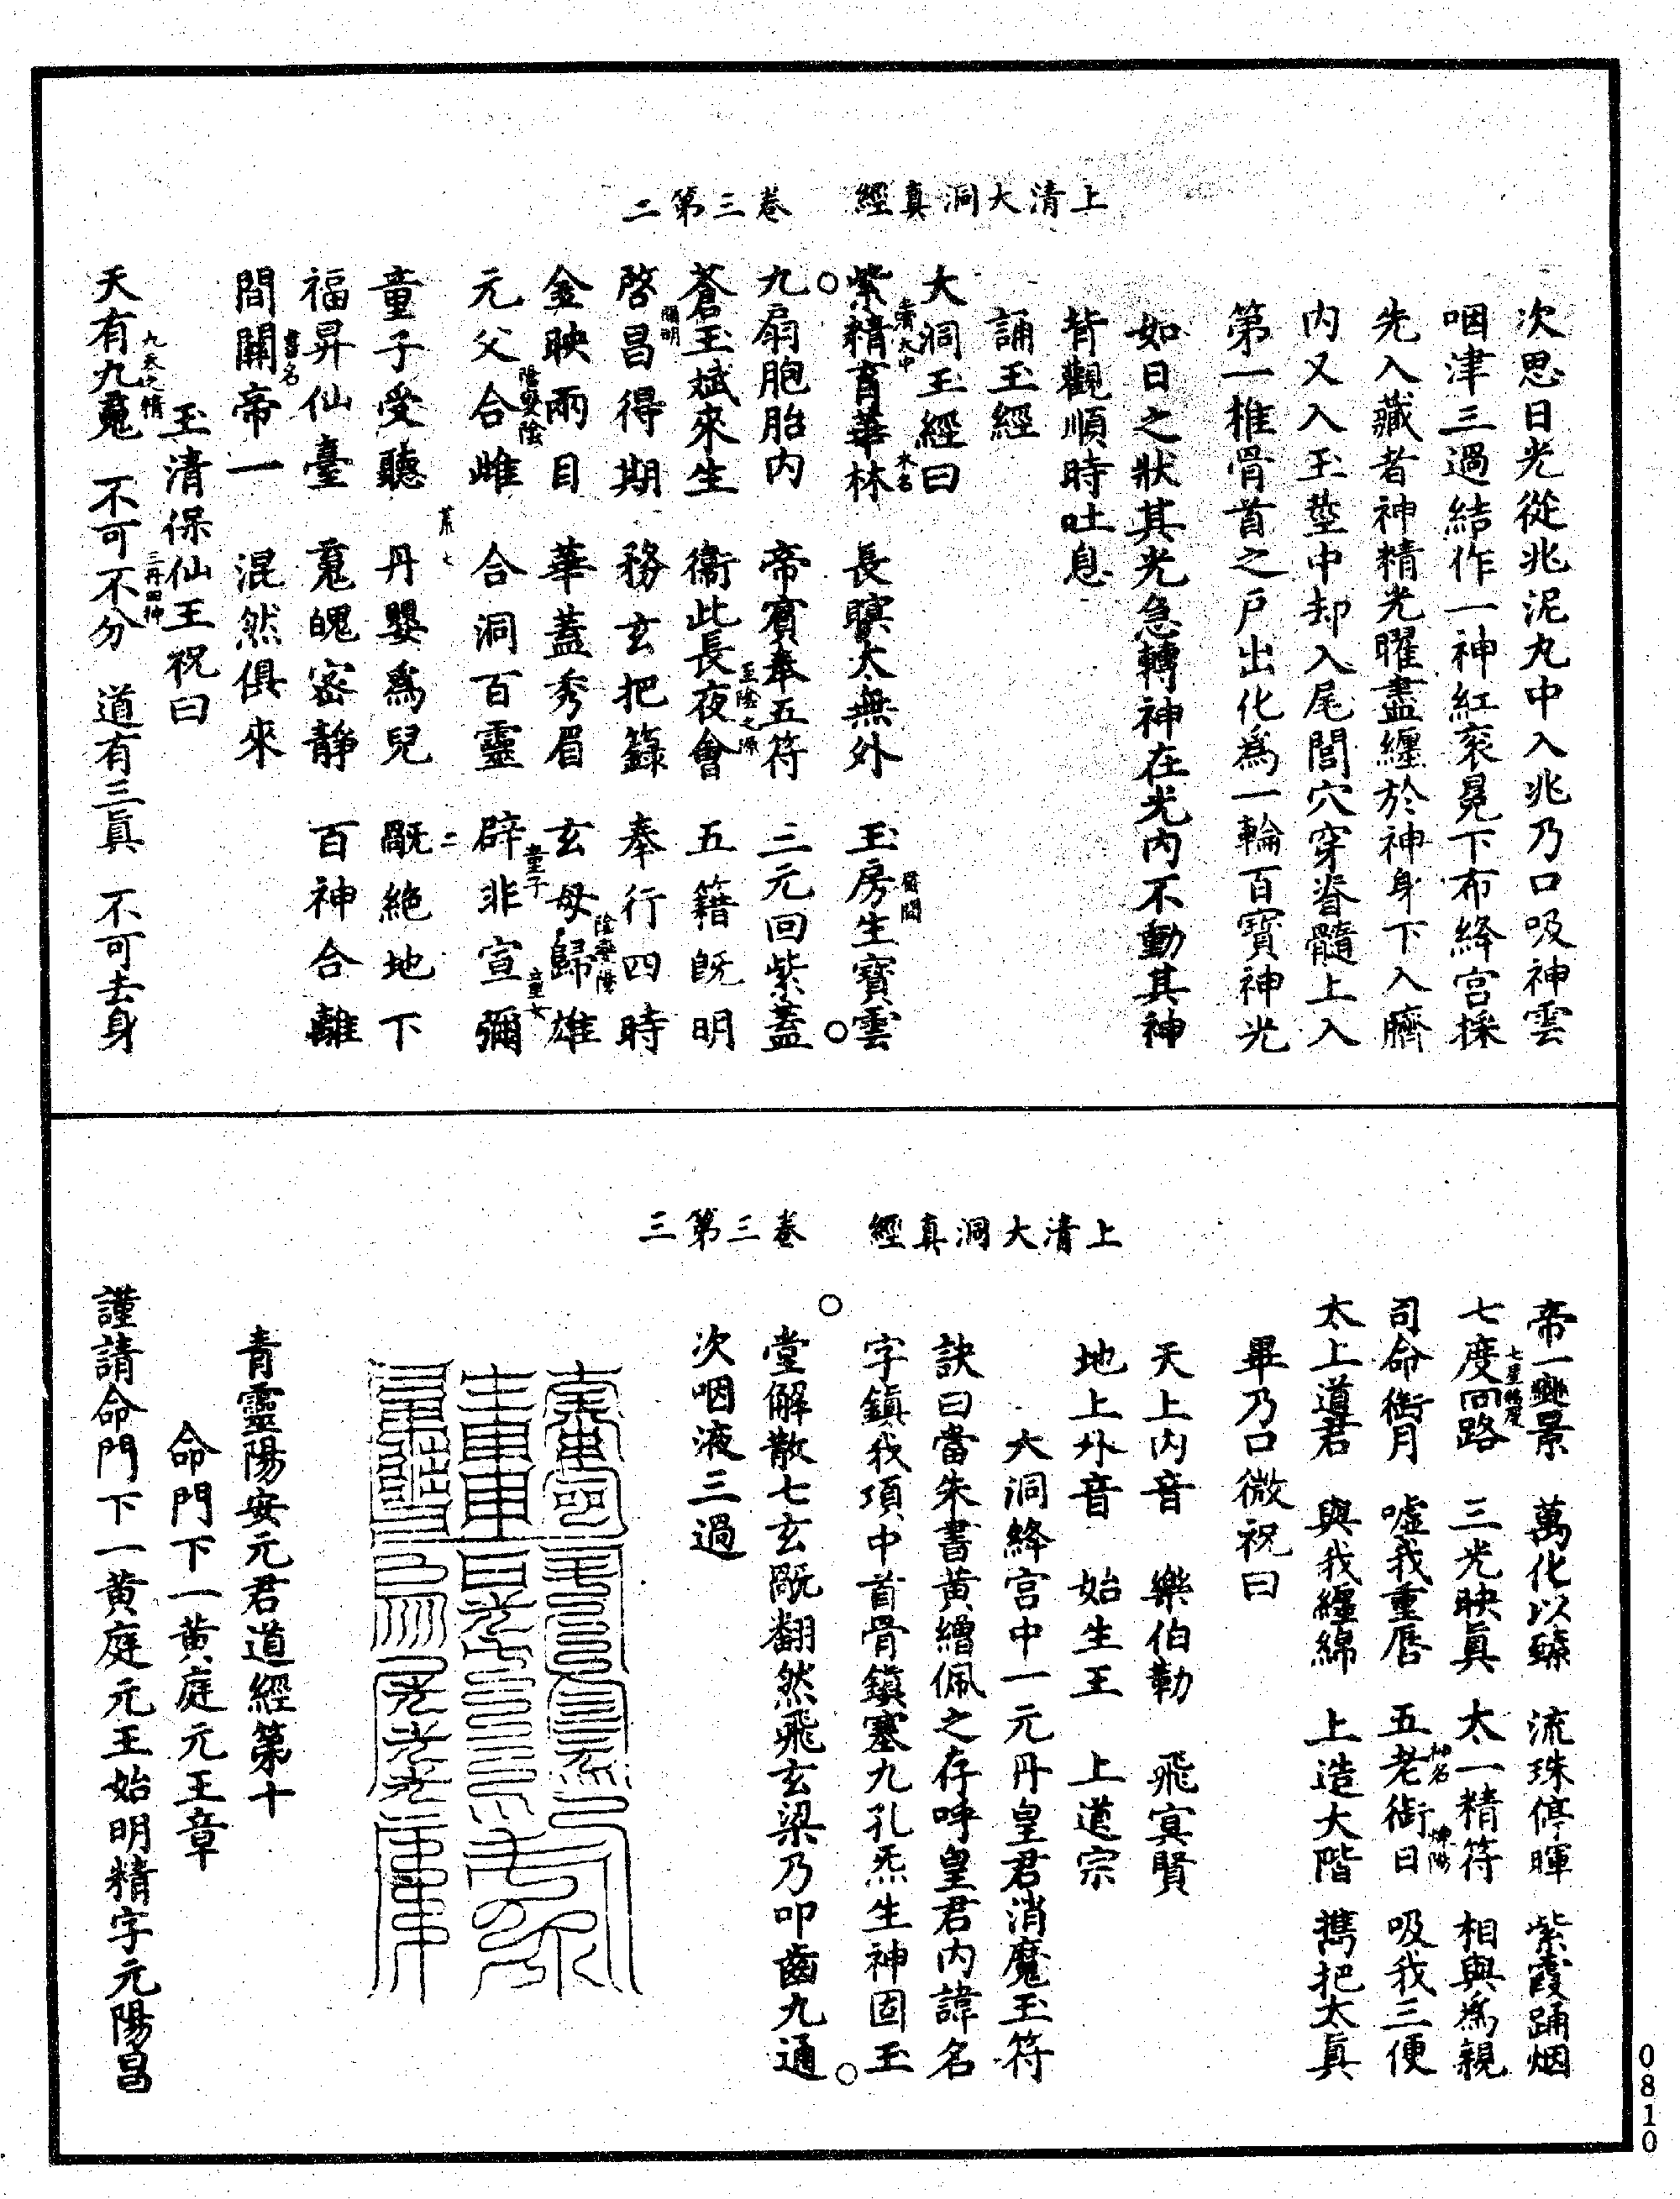 上清大洞真經　卷三第二
次思日光從兆泥丸中入兆乃口吸神雲
咽津三過結作一神紅衮冕下布絳宮採
先入藏者神精光曜盡纏於神身下入臍
内又入玉莖中却入尾閭穴穿脊髓上入
第一椎骨首之戶出化為一輪百寶神光
如日之狀其光急轉神在光内不動其神
背觀順時吐息
誦玉經
大洞玉經曰
紫精育華林　長瞑太無外　玉房生寶雲
九扇胞胎内　帝賓奉五符　三元回紫蓋
蒼玉斌來生　衞此長夜會　五籍既明
啓昌得期　務玄把籙　奉行四時
金映兩目　華蓋秀眉　玄母歸雄
元父合雌　合洞百靈　辟非宣彌
童子受聽　丹嬰為兒　翫絶地下
福昇仙臺　䰟魄密静　百神合離
間關帝一　混然俱來
玉清保仙王祝曰
天有九䰟　不可不分　道有三眞　不可去身
上清大洞真經　卷三第三
帝一變景　萬化以臻　流珠停暉　紫霞踊烟
七度回路　三光映眞　太一精符　相與為親
司命銜月　噓我重脣　五老銜日　吸我三便
太上道君　與我纏綿　上造大階　携把太眞
畢乃口微祝曰
天上内音　樂伯勒　飛冥賢
地上外音　始生王　上道宗
大洞絳宮中一元丹皇君消魔玉符
訣曰當朱書黃繒佩之存呼皇君内諱名
字鎮我項中首骨鎮塞九孔炁生神固玉
堂解散七玄翫翻然飛玄梁乃叩齒九通
次咽液三過
青靈陽安元君道經第十
命門下一黃庭元王章
謹請命門下一黃庭元王始明精字元陽昌
0810